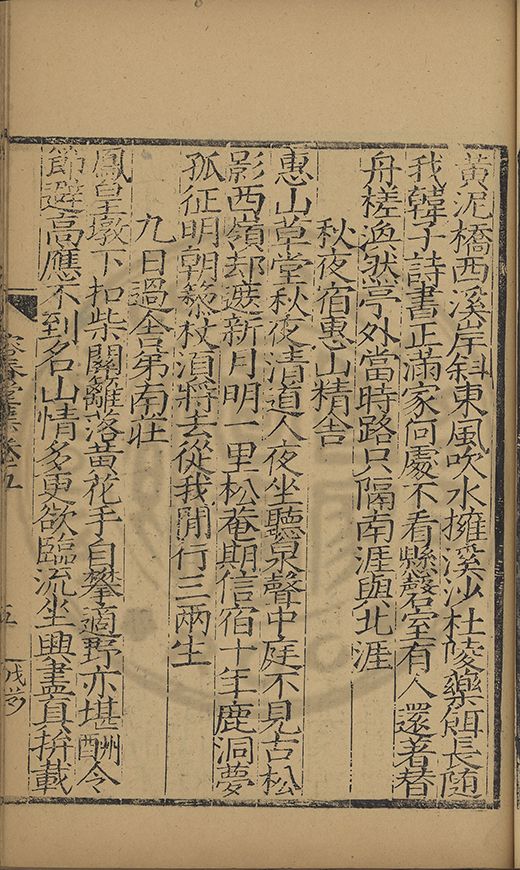 黃泥橋西溪岸斜東風吹水擁溪沙杜陵藥餌長随
我韓子詩書正滿家何處不看縣磬室有人還著替
舟槎渙然亭外當時路只隔南涯與北涯
秋夜宿惠山精舍
惠山草堂秋夜清道人夜坐聽泉聲中庭不見古松
影西嶺却遮新月明一里松菴期信宿十年鹿洞夢
孤征明朝藜杖須將去從我閒行三兩生
九日過舍弟南莊
鳳皇墩下扣柴關籬落黃花手自攀適野亦堪酬令
節避高應不到名山情多更欲臨流坐興盡真拚載
容春堂集卷五
五